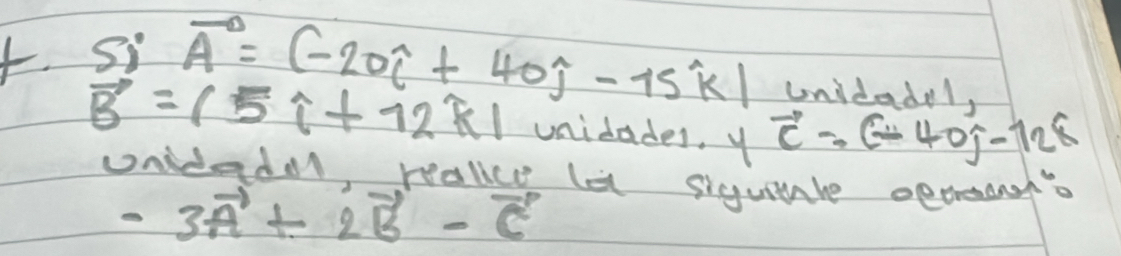 1. Si A⃗ = (-20î + 40ĵ - 15k̂) unidades,
B⃗ = (5î + 12k̂) unidades. y C⃗ = (-40ĵ - 12k̂
unidades, realice la siguiente operación:
- 3A⃗ + 2B⃗ - C⃗